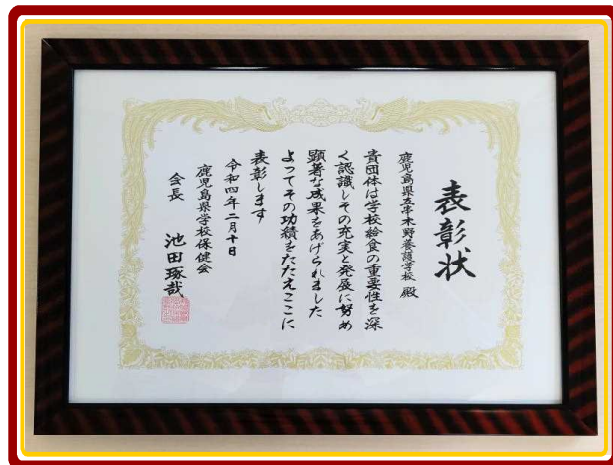 表彰状
鹿児島県立串木野養護学校 殿
貴団体は学校給食の重要性を深
く認識しその充実と発展に努め
顕著な成果をあげられました
よってその功績をたたえここに
表彰します
令和四年二月十日
鹿児島県学校保健会
会長 池田琢哉